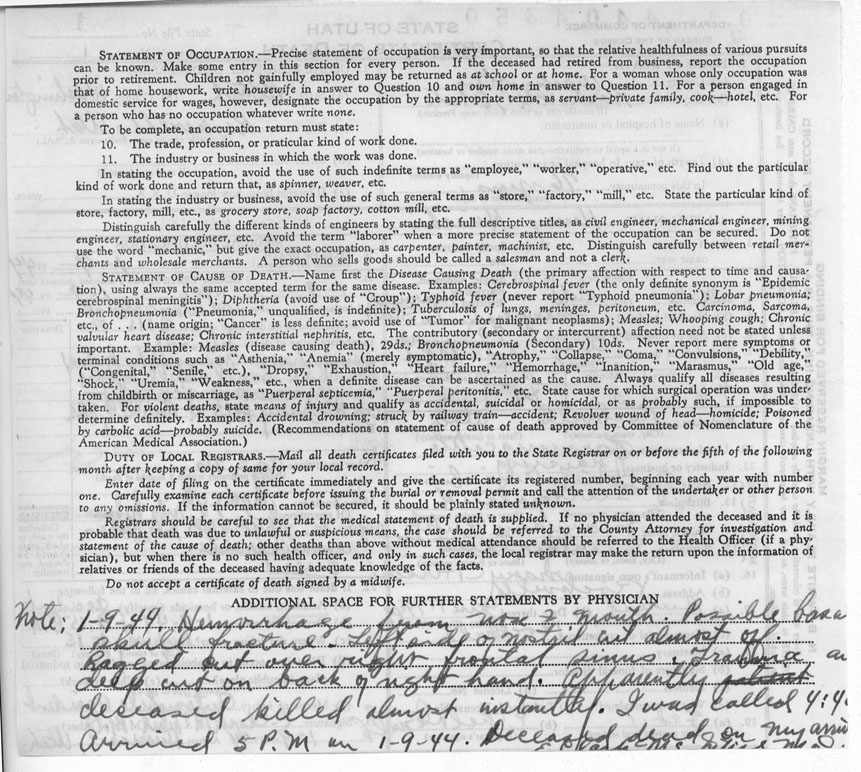 STATEMENT OF OCCUPATION.—Precise statement of occupation is very important, so that the relative healthfulness of various pursuits
can be known. Make some entry in this section for every person. If the deceased had retired from business, report the occupation
prior to retirement. Children not gainfully employed may be returned as at school or at home. For a woman whose only occupation was
that of home housework, write housewife in answer to Question 10 and own home in answer to Question 11. For a person engaged in
domestic service for wages, however, designate the occupation by the appropriate terms, as servant—private family, cook—hotel, etc. For
a person who has no occupation whatever write none.
To be complete, an occupation return must state:
10. The trade, profession, or praticular kind of work done.
11. The industry or business in which the work was done.
In stating the occupation, avoid the use of such indefinite terms as "employee," "worker," "operative," etc. Find out the particular
kind of work done and return that, as spinner, weaver, etc.
In stating the industry or business, avoid the use of such general terms as "store," "factory," "mill," etc. State the particular kind of
store, factory, mill, etc., as grocery store, soap factory, cotton mill, etc.
Distinguish carefully the different kinds of engineers by stating the full descriptive titles, as civil engineer, mechanical engineer, mining
engineer, stationary engineer, etc. Avoid the term "laborer" when a more precise statement of the occupation can be secured. Do not
use the word "mechanic," but give the exact occupation, as carpenter, painter, machinist, etc. Distinguish carefully between retail mer-
chants and wholesale merchants. A person who sells goods should be called a salesman and not a clerk.
STATEMENT OF CAUSE OF DEATH.—Name first the Disease Causing Death (the primary affection with respect to time and causa-
tion), using always the same accepted term for the same disease. Examples: Cerebrospinal fever (the only definite synonym is "Epidemic
cerebrospinal meningitis"); Diphtheria (avoid use of "Croup"); Typhoid fever (never report "Typhoid pneumonia"); Lobar pneumonia;
Bronchopneumonia ("Pneumonia," unqualified, is indefinite); Tuberculosis of lungs, meninges, peritoneum, etc. Carcinoma, Sarcoma,
etc., of . . . (name origin; "Cancer" is less definite; avoid use of "Tumor" for malignant neoplasms); Measles; Whooping cough; Chronic
valvular heart disease; Chronic interstitial nephritis, etc. The contributory (secondary or intercurrent) affection need not be stated unless
important. Example: Measles (disease causing death), 29ds.; Bronchopneumonia (Secondary) 10ds. Never report mere symptoms or
terminal conditions such as "Asthenia," "Anemia" (merely symptomatic), "Atrophy," "Collapse," "Coma," "Convulsions," "Debility,"
("Congenital," "Senile," etc.), "Dropsy," "Exhaustion," "Heart failure," "Hemorrhage," "Inanition," "Marasmus," "Old age,"
"Shock," "Uremia," "Weakness," etc., when a definite disease can be ascertained as the cause. Always qualify all diseases resulting
from childbirth or miscarriage, as "Puerperal septicemia," "Puerperal peritonitis," etc. State cause for which surgical operation was under-
taken. For violent deaths, state means of injury and qualify as accidental, suicidal or homicidal, or as probably such, if impossible to
determine definitely. Examples: Accidental drowning; struck by railway train—accident; Revolver wound of head—homicide; Poisoned
by carbolic acid—probably suicide. (Recommendations on statement of cause of death approved by Committee of Nomenclature of the
American Medical Association.)
DUTY OF LOCAL REGISTRARS.—Mail all death certificates filed with you to the State Registrar on or before the fifth of the following
month after keeping a copy of same for your local record.
Enter date of filing on the certificate immediately and give the certificate its registered number, beginning each year with number
one. Carefully examine each certificate before issuing the burial or removal permit and call the attention of the undertaker or other person
to any omissions. If the information cannot be secured, it should be plainly stated unknown.
Registrars should be careful to see that the medical statement of death is supplied. If no physician attended the deceased and it is
probable that death was due to unlawful or suspicious means, the case should be referred to the County Attorney for investigation and
statement of the cause of death; other deaths than above without medical attendance should be referred to the Health Officer (if a phy-
sician), but when there is no such health officer, and only in such cases, the local registrar may make the return upon the information of
relatives or friends of the deceased having adequate knowledge of the facts.
Do not accept a certificate of death signed by a midwife.
ADDITIONAL SPACE FOR FURTHER STATEMENTS BY PHYSICIAN
Note; 1-9-44 Hemorrhage from nose & mouth. Possible
skull fracture. Left side of nostril cut almost off.
Ragged cut over right frontal sinus.
deep cut on back of right hand. Apparently
deceased killed almost instantly. I was called
Arrived 5 P.M on 1-9-44. Deceased dead on my